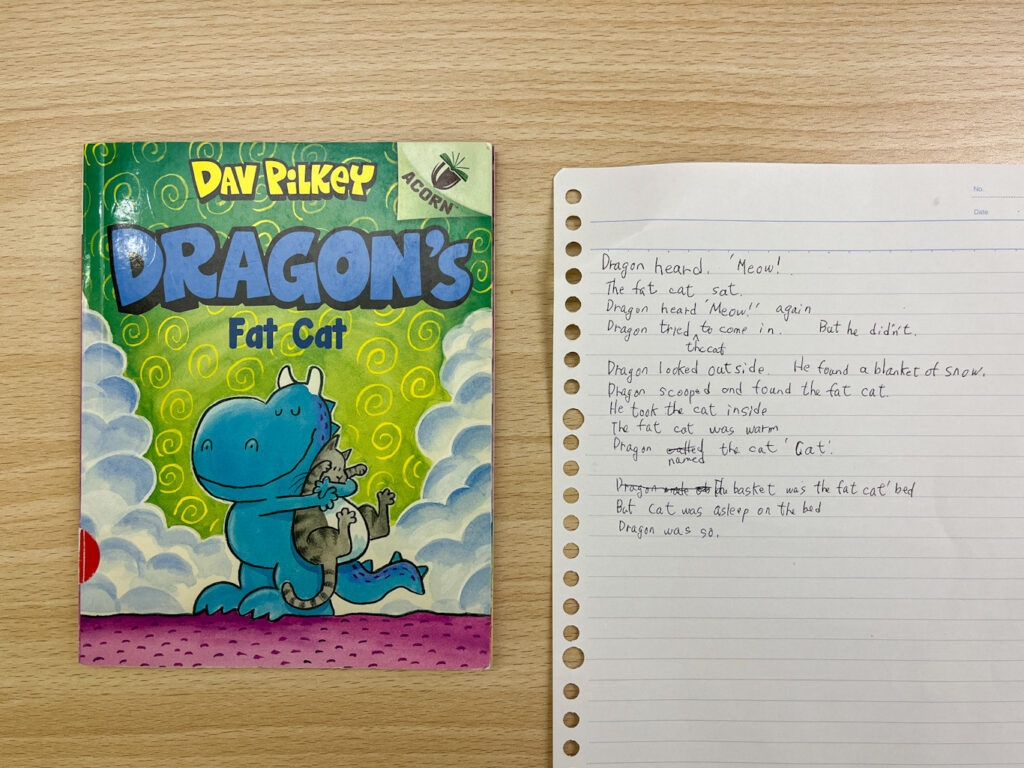 DAV PILKEY
ACORN
DRAGON'S
Fat Cat
No.
Date
Dragon heard. 'Meow!.
The fat cat sat.
Dragon heard 'Meow!' again
Dragon tried to come in. But he didn't.
the cat
Dragon looked outside. He found a blanket of snow.
Dragon scooped and found the fat cat.
He took the cat inside
The fat cat was warm
Dragon called the cat 'Cat'.
named
Dragon The basket was the fat cat' bed
But cat was asleep on the bed
Dragon was so.